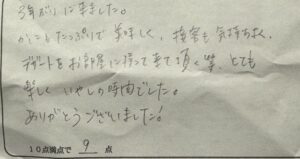 3年ぶりに来ました。
たっぷりで美味しく、接客も気持ちよく、
デザートをお部屋に持って来て頂く等、とても
楽しくいやしの時間でした。
ありがとうございました!
10点満点で 9 点